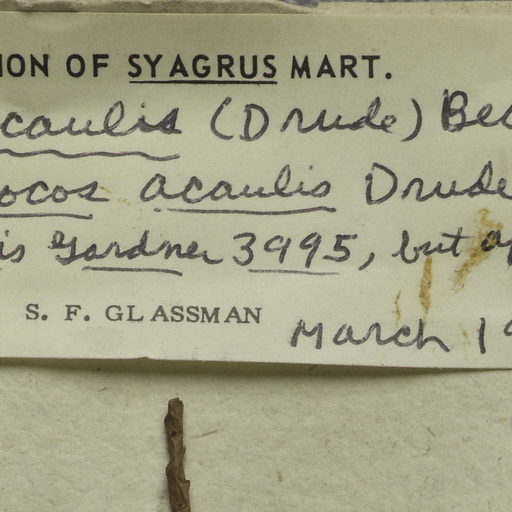 ION OF SYAGRUS MART.
caulis (Drude) Bec
ocos acaulis Drude
is Gardner 3995, but ap
S. F. GLASSMAN
March 19